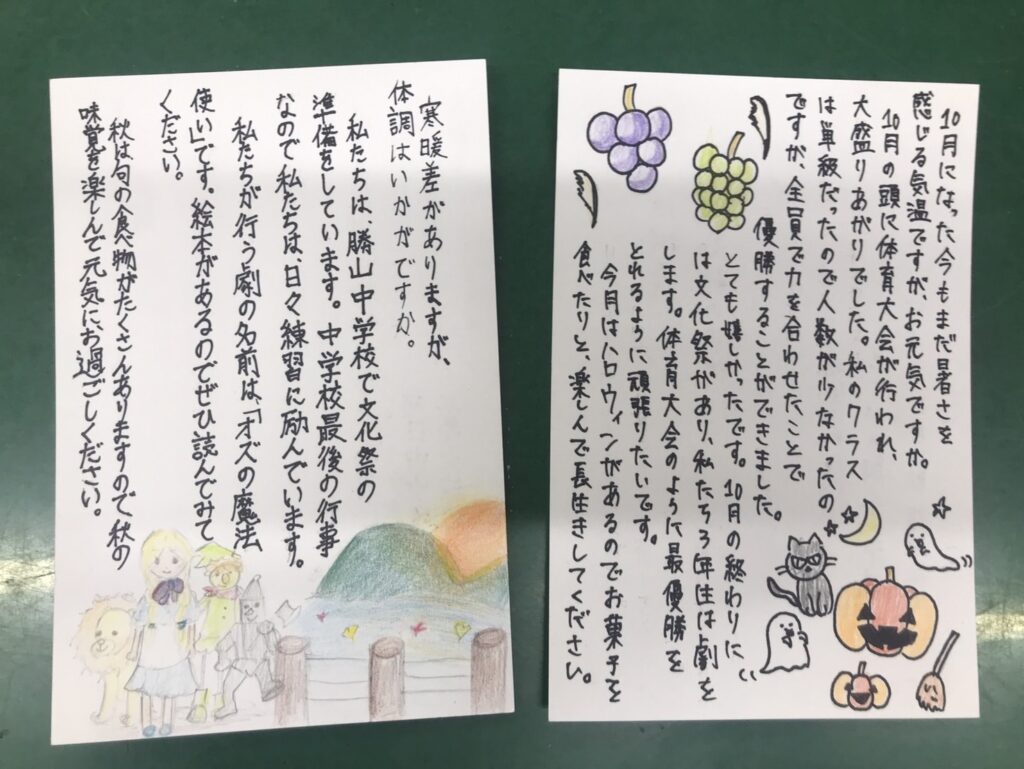 10月になった今もまだ暑さを
感じる気温ですが、お元気ですか。
10月の頭に体育大会が行われ、
大盛りあがりでした。私のクラス
は単級だったので人数が少なかったの
ですが、全員で力を合わせたことで
優勝することができました。
とても嬉しかったです。10月の終わりに
は文化祭があり、私たち3年生は劇を
します。体育大会のように最優勝を
とれるように頑張りたいです。
今月はハロウィンがあるのでお菓子を
食べたりと、楽しんで長生きしてください。
寒暖差がありますが、
体調はいかがですか。
私たちは、勝山中学校で文化祭の
準備をしています。中学校最後の行事
なので私たちは、日々練習に励んでいます。
私たちが行う劇の名前は、「オズの魔法
使い」です。絵本があるのでぜひ読んでみて
ください。
秋は旬の食べ物がたくさんありますので秋の
味覚を楽しんで元気にお過ごしください。